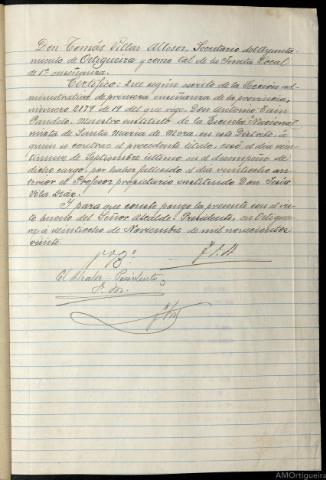 Don Tomás Villar Allesor, Secretario del Ayunta-
miento de Ortigueira y como tal de la Junta Local
de 1ª enseñanza.
Certifico: Que según escrito de la Sección ad-
ministrativa de primera enseñanza de la provincia,
número 2179 de 19 del que rige Don Antonio
Maestro sustituto de la Escuela Nacional
mixta de Santa María de Mera, en este Distrito, á
quien se contrae el precedente título, cesó el día vein-
tinueve de Septiembre último en el desempeño de
dicho cargo, por haber fallecido el día veintiocho an-
terior el Profesor propietario sustituido Don
Vila
Y para que conste pongo la presente con el vis-
to bueno del Señor Alcalde-Presidente, en Ortiguei-
ra á veintiocho de Noviembre de mil novecientos
veinte.
Vº Bº
El Alcalde-Presidente
AMOrtigueira